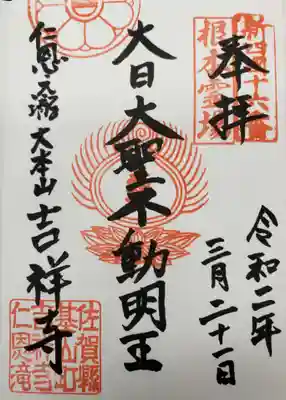 奉拝
令和二年
三月二十一日
大日大聖不動明王
仁恩之滝大本山吉祥寺
根本霊場
佐賀縣
基山町
吉祥寺
仁恩滝